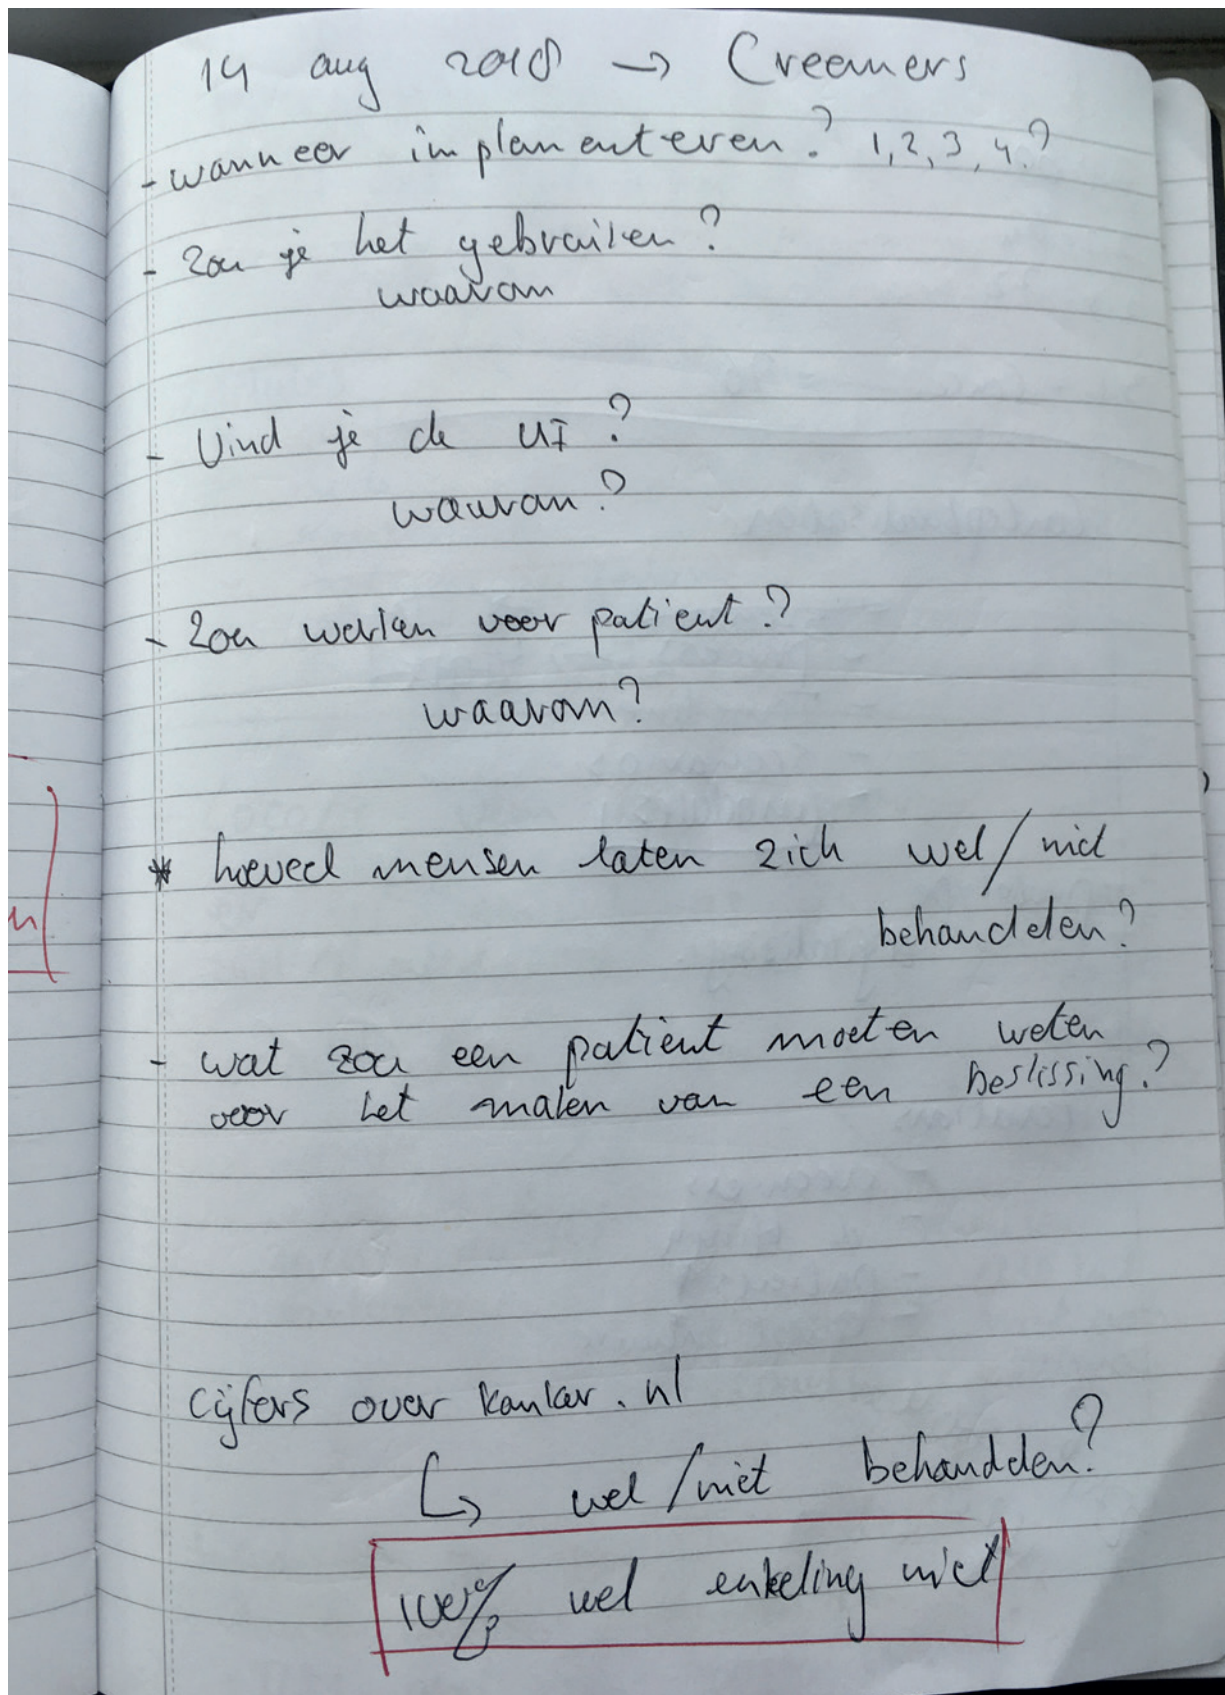 14 aug 2018 → Creemers
- wanneer implementeren? 1, 2, 3, 4?
- Zou je het gebruiken?
waarom
- Vind je de UI?
waarom?
- Zou werken voor patient?
waarom?
* hoeveel mensen laten zich wel/niet
behandelen?
- wat zou een patient moeten weten
voor het maken van een beslissing?
cijfers over kanker.nl
↳ wel/niet behandelen?
100% wel enkeling niet